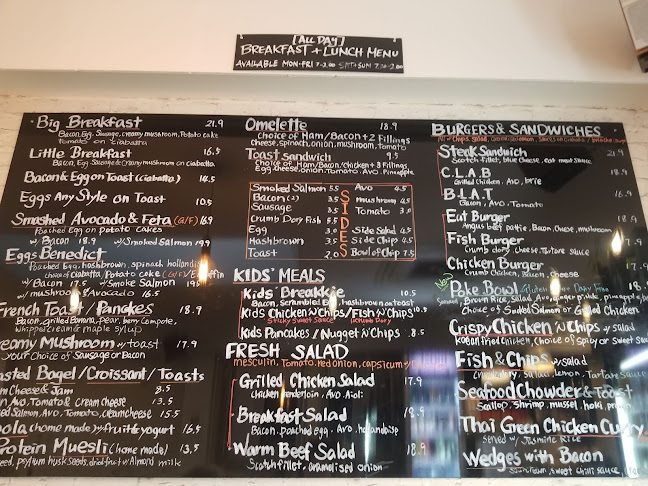 [ALL DAY]
BREAKFAST + LUNCH MENU
AVAILABLE MON-FRI 7-3.00 SAT+SUN 7.30-2.00
Big Breakfast 21.9
Bacon, Egg, Sausage, creamy mushroom, Potato cake
Tomato on Ciabatta
Little Breakfast 16.5
Bacon, Egg, Sausage & creamy mushroom on Ciabatta
Bacon & Egg on Toast (Ciabatta) 14.5
Eggs Any Style on Toast 10.5
Smashed Avocado & Feta (G/F) 16.9
Poached Egg on potato cakes
w/ Bacon 18.9 w/ Smoked Salmon 19.9
Eggs Benedict
Poached Egg, Hashbrown, spinach, hollandi
choice of Ciabatta, Potato cake (G/F)
w/ Bacon 17.5 w/ Smoke Salmon
w/ mushroom & Avocado 16.5
French Toast / Pancakes 18.9
Bacon, grilled Banana, pear, berry compote,
whipped cream & maple syrup
reamy Mushroom w/ toast 17.9
your choice of Sausage or Bacon
asted Bagel / Croissant / Toasts
Cheese & Jam 8.5
Avo, Tomato & cream cheese 13.5
ed Salmon, Avo, Tomato, creamcheese 15.5
ola (home made) w/ fruit & yogurt 16.5
rotein Muesli (home made) 13.5
eed, psyllium husk seeds, dried fruit w/ Almond milk
Omelette 18.9
Choice of Ham/Bacon + 2 Fillings
Cheese, spinach, onion, mushroom, Tomato
Toast sandwich 9.5
Choice of Ham/Bacon/chicken + 3 Fillings
Egg, cheese, onion, Tomato, Avo, Pineapple
SIDES
Smoked Salmon 5.5 Avo 4.5
Bacon (2) 5.5 Mushroom 4.5
Sausage 3.5 Tomato 3.0
Crumb Dory Fish 5.5
Egg 3.0 Side Salad 4.5
Hashbrown 3.5 Side Chip 4.5
Toast 2.0 Bowl of Chip 7.5
KIDS' MEALS
Kids' Breakkie 10.5
Bacon, Scrambled Egg, hashbrown on toast
Kids Chicken 'n' Chips / Fish 'n' Chips 10.5
Sticky Sweet Sauce
Kids Pancakes / Nugget 'n' Chips 8.5
FRESH SALAD
mesculin, Tomato, red onion, capsicum
Grilled Chicken Salad 17.9
chicken Tenderloin, Avo, Aioli
Breakfast Salad 18.9
Bacon, poached egg, Avo,
Warm Beef Salad 18.9
Scotch fillet, caramelised onion
BURGERS & SANDWICHES
Steak Sandwich 21.9
Scotch fillet, blue cheese,
C.L.A.B 18.9
Grilled Chicken, Avo, brie
B.L.A.T 16.9
Bacon, Avo, Tomato
Eat Burger 18.9
Angus beef pattie, Bacon, cheese,
Fish Burger 17.9
Crumb dory cheese, Tartare sauce
Chicken Burger
Crumb Chicken, Bacon, cheese
Poke Bowl Gluten Free Dairy Free
Brown Rice, Salad, Avo, ginger pickle, pineapple
Choice of Smoked Salmon or Grilled Chicken
Crispy Chicken 'n' Chips w/ salad
Korean fried Chicken, Choice of Spicy or Sweet
Fish & Chips w/ salad
Crumb dory, Salad, Lemon, Tartare Sauce
Seafood Chowder & Toast
Scallop, Shrimp, mussel, hoki, prawn
Thai Green Chicken Curry
served w/ Jasmine Rice
Wedges with Bacon
sweet chilli sauce